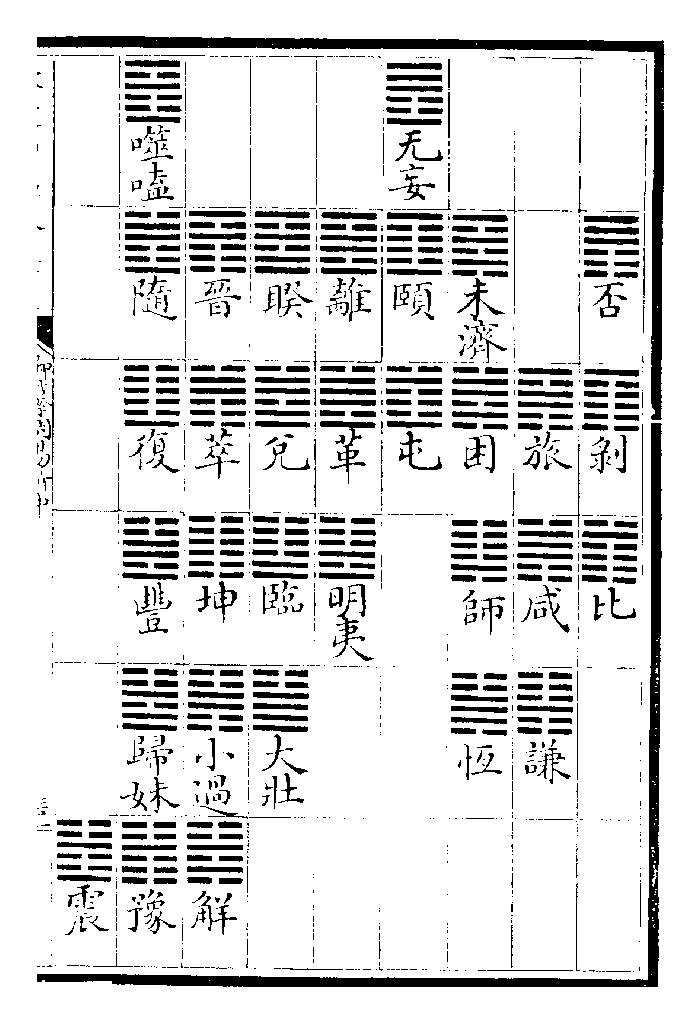 否 剝 比
旅 咸 謙
未濟 困 師 恆
无妄 頤 屯
離 革 明夷
睽 兌 臨 大壯
晉 萃 坤 小過 解
噬嗑 隨 復 豐 歸妹 豫
震